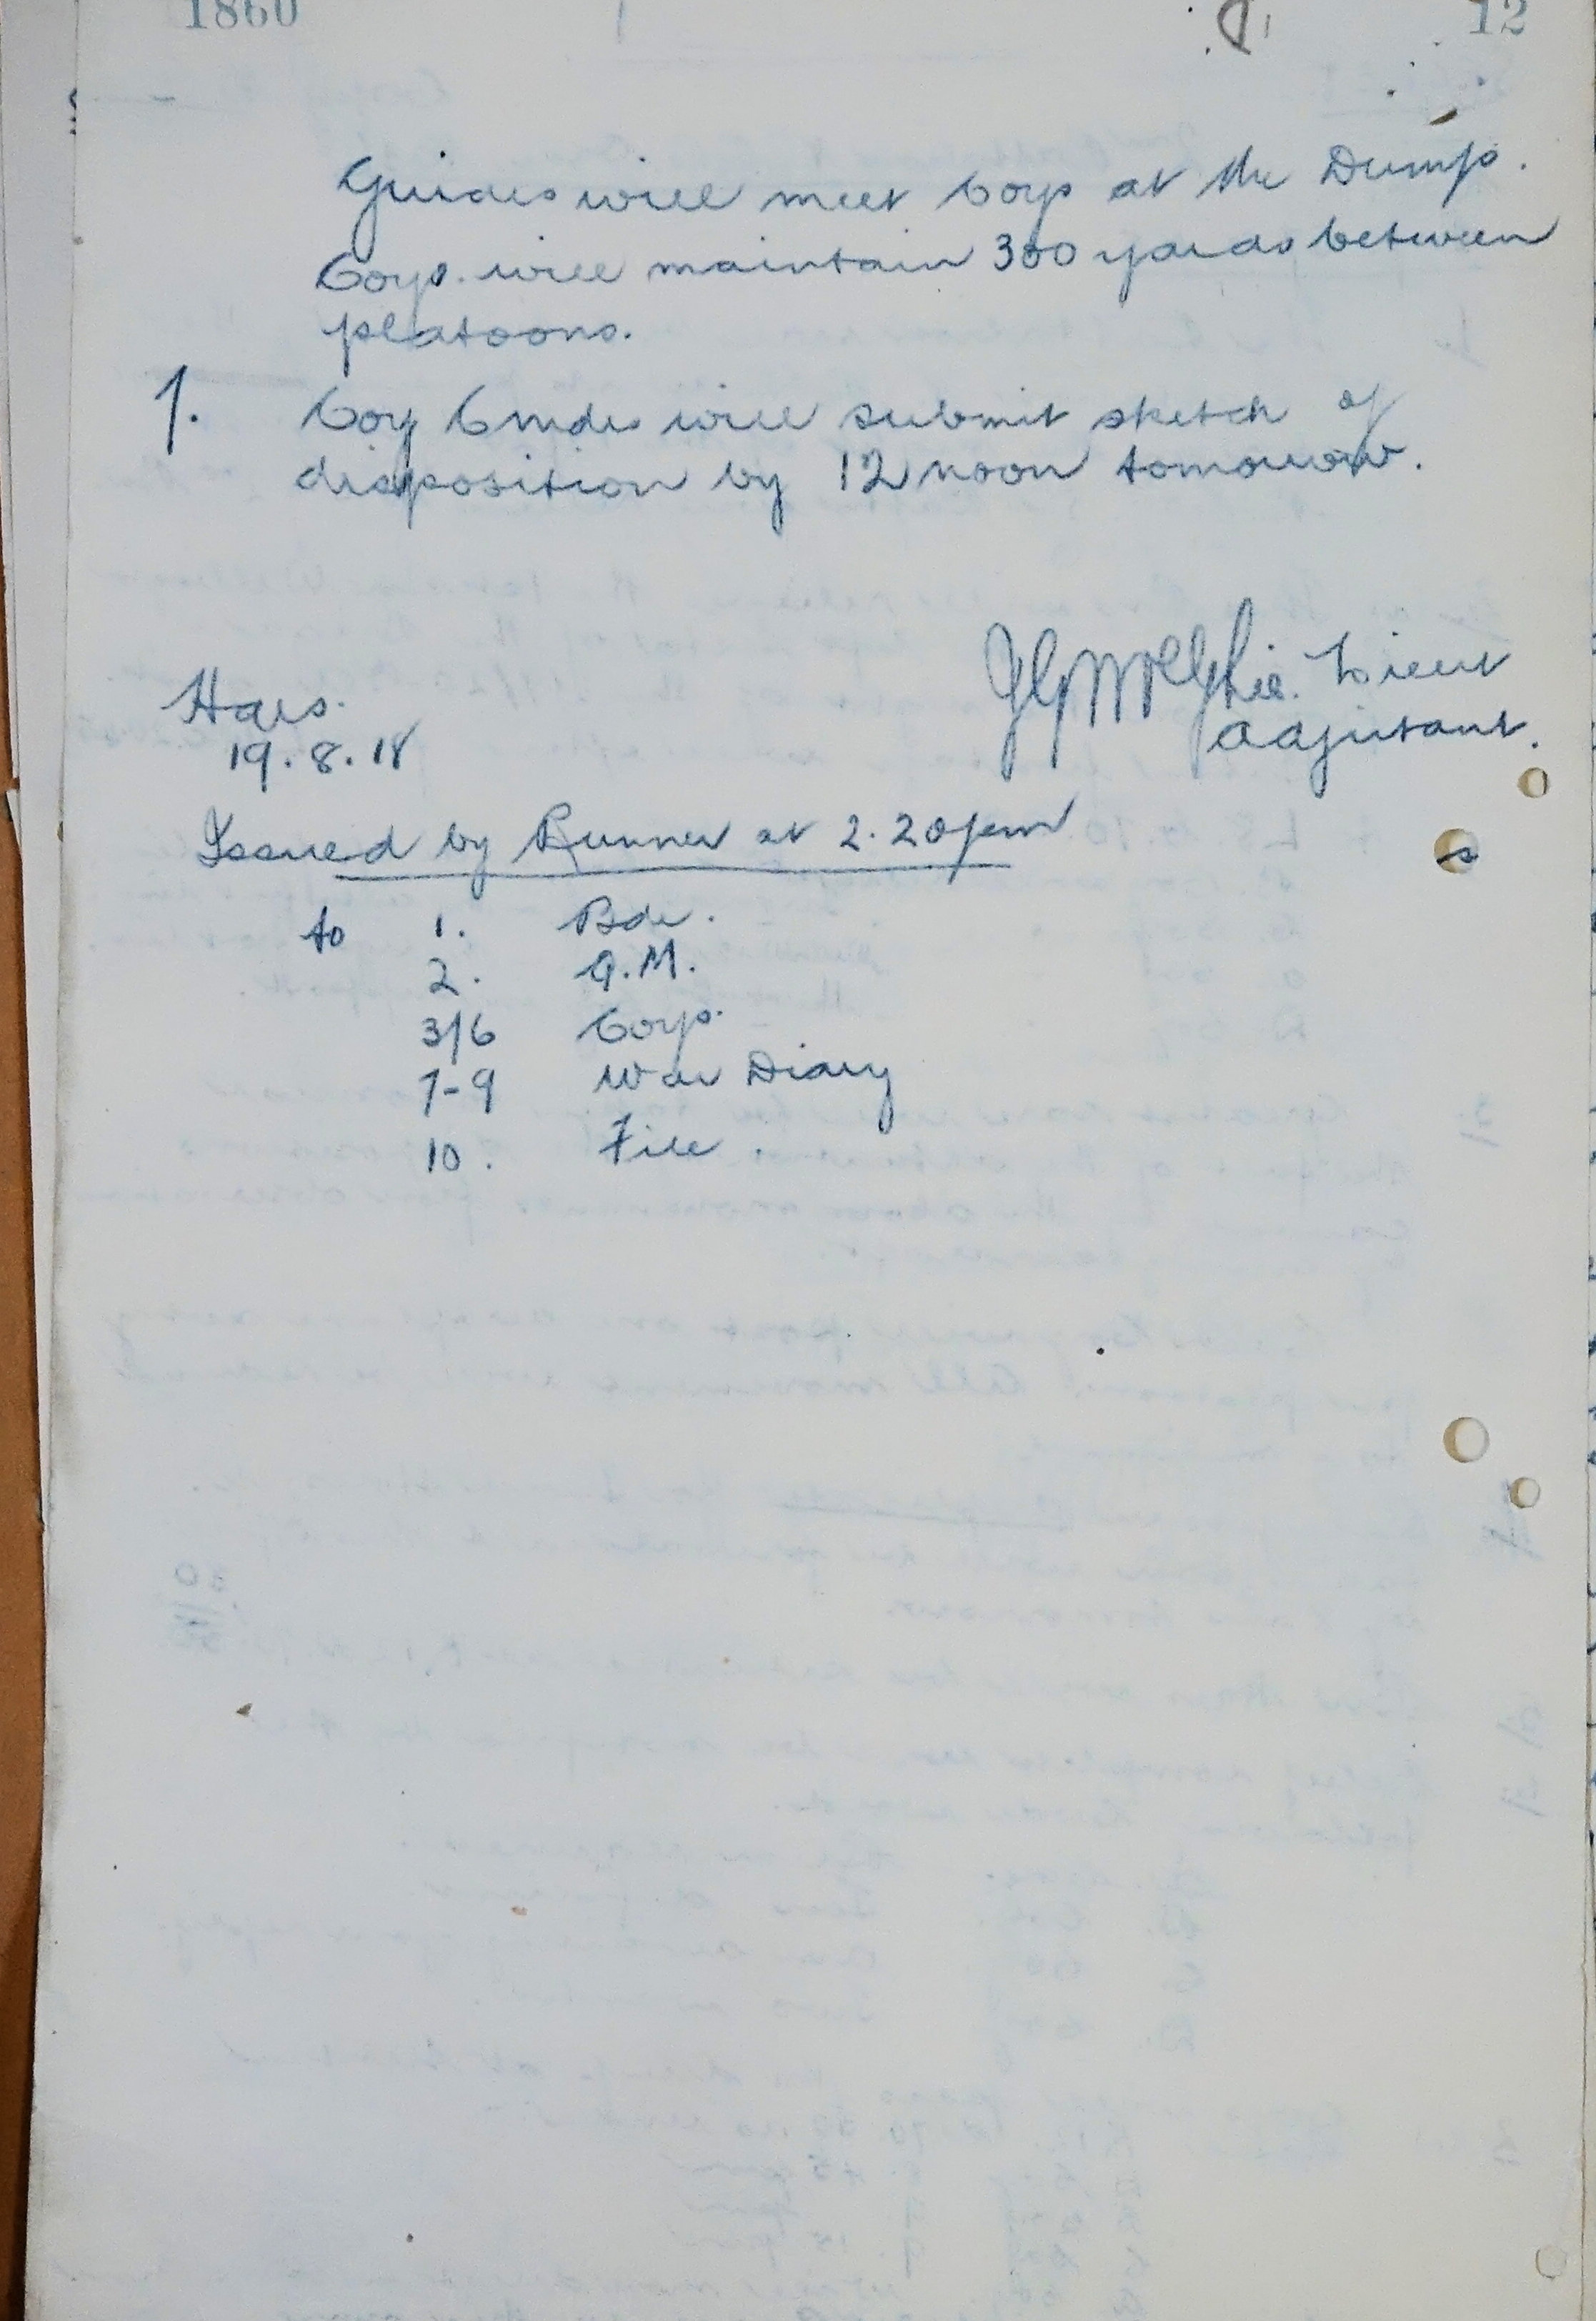 1860 12
Guides will meet Coys at the Dump.
Coys. will maintain 300 yards between
platoons.
7. Coy Cmdrs will submit sketch of
disposition by 12 noon tomorrow.
Lieut
Hqrs. Adjutant.
19.8.18
Issued by Runner at 2.20pm
to 1. Bde.
2. Q.M.
3/6 Coys.
7-9 War Diary
10. File.